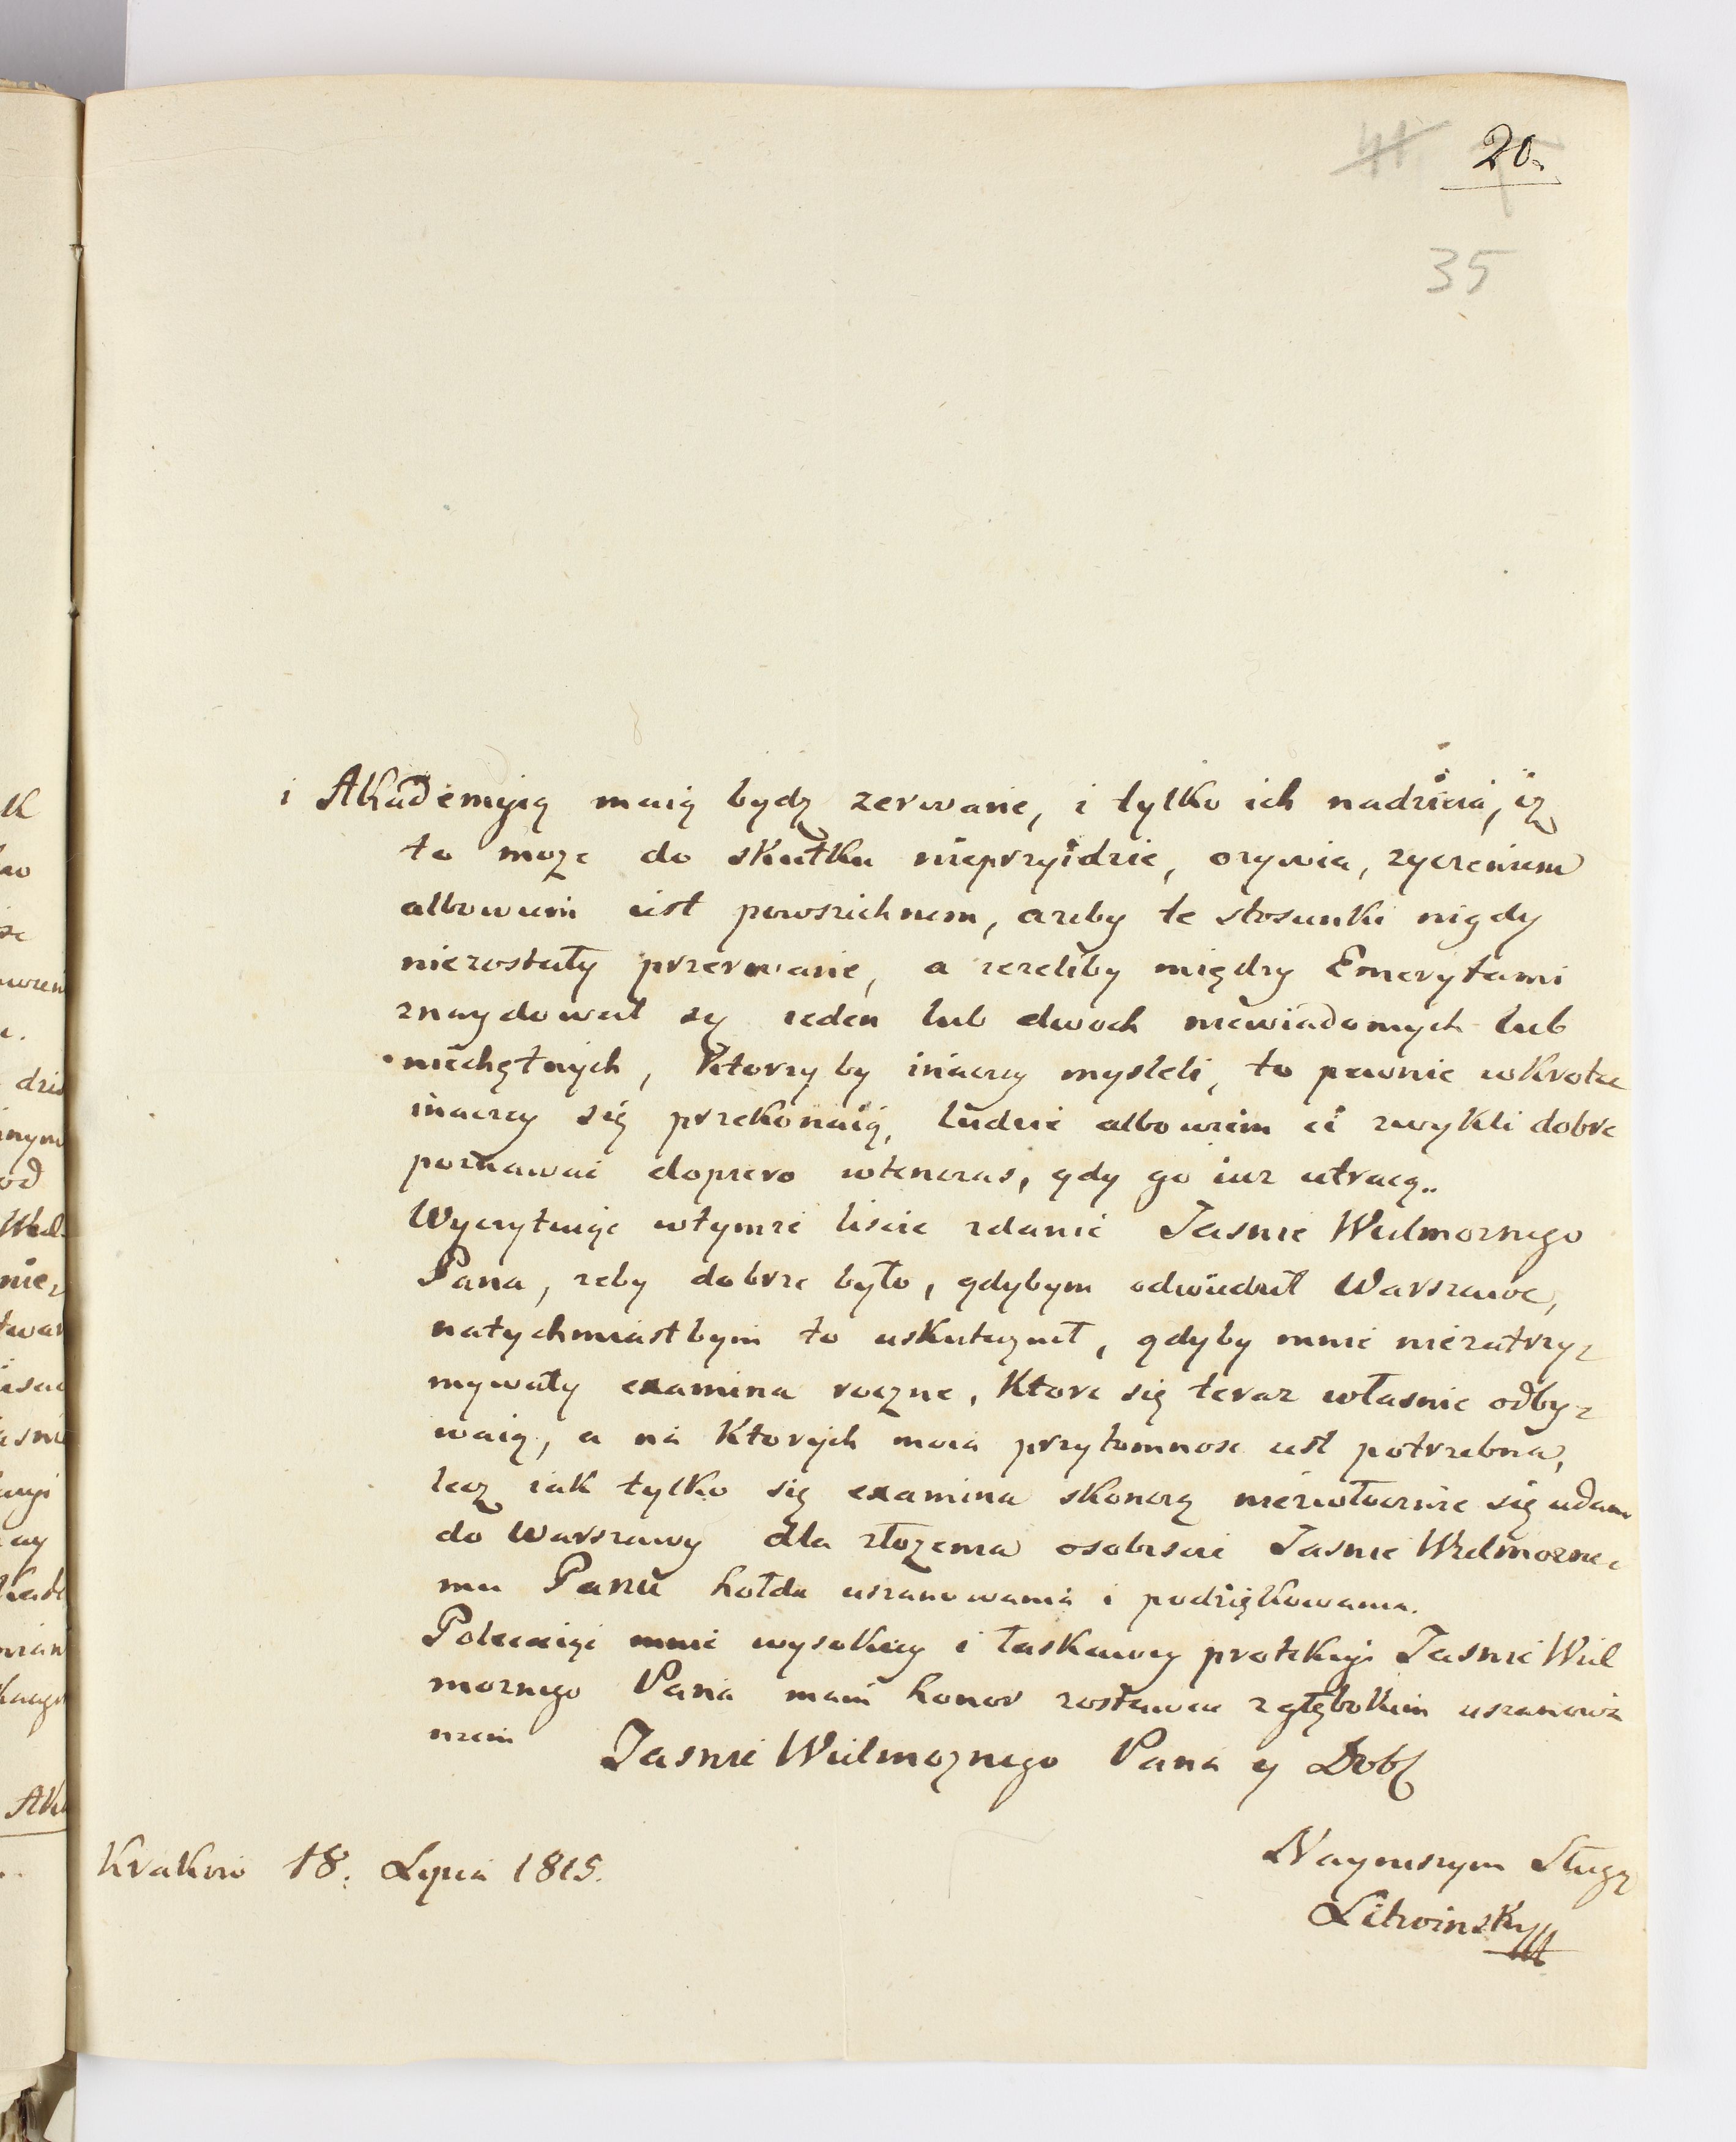 41 20.
35
i Akademyią maią bydz zerwane, i tylko ich nadzieia, iz
to moze do skutku nieprzyidzie, ozywia, zyczeniem
albowiem iest powszechnem, azeby te stosunki nigdy
niezostały przerwane, a iezeliby między Emerytami
znaydował się ieden lub dwoch niewiadomych lub
niechętnych, ktorzyby inaczey mysleli, to pewnie wkrotce
inaczey się przekonaią, ludzie albowiem ci zwykli dobre
poznawac dopiero wtenczas, gdy go iuz utracą..
Wyczytuiąc wtymze liscie zdanie Jasnie Wielmoznego
Pana, zeby dobrze było, gdybym odwiedził Warszawe,
natychmiastbym to uskutecznił, gdyby mnie niezatrzy-
mywały examina roczne, ktore się teraz własnie odby-
waią, a na ktorych moia przytomnosc iest potrzebna,
lecz iak tylko się examina skonczą niezwłocznie się udam
do Warszawy dla złozenia osobiscie Jasnie Wielmozne-
mu Panu hołdu uszanowania i podziękowania.
Polecaiąc mnie wysokiey i łaskawey protekcyi Jasnie Wiel
moznego Pana mam honor zostawac zgłębokim uszanowa
niem Jasnie Wielmoznego Pana y Dob
Krakow 18. Lipca 1815. Nayniszym Sługą
Litwinsky